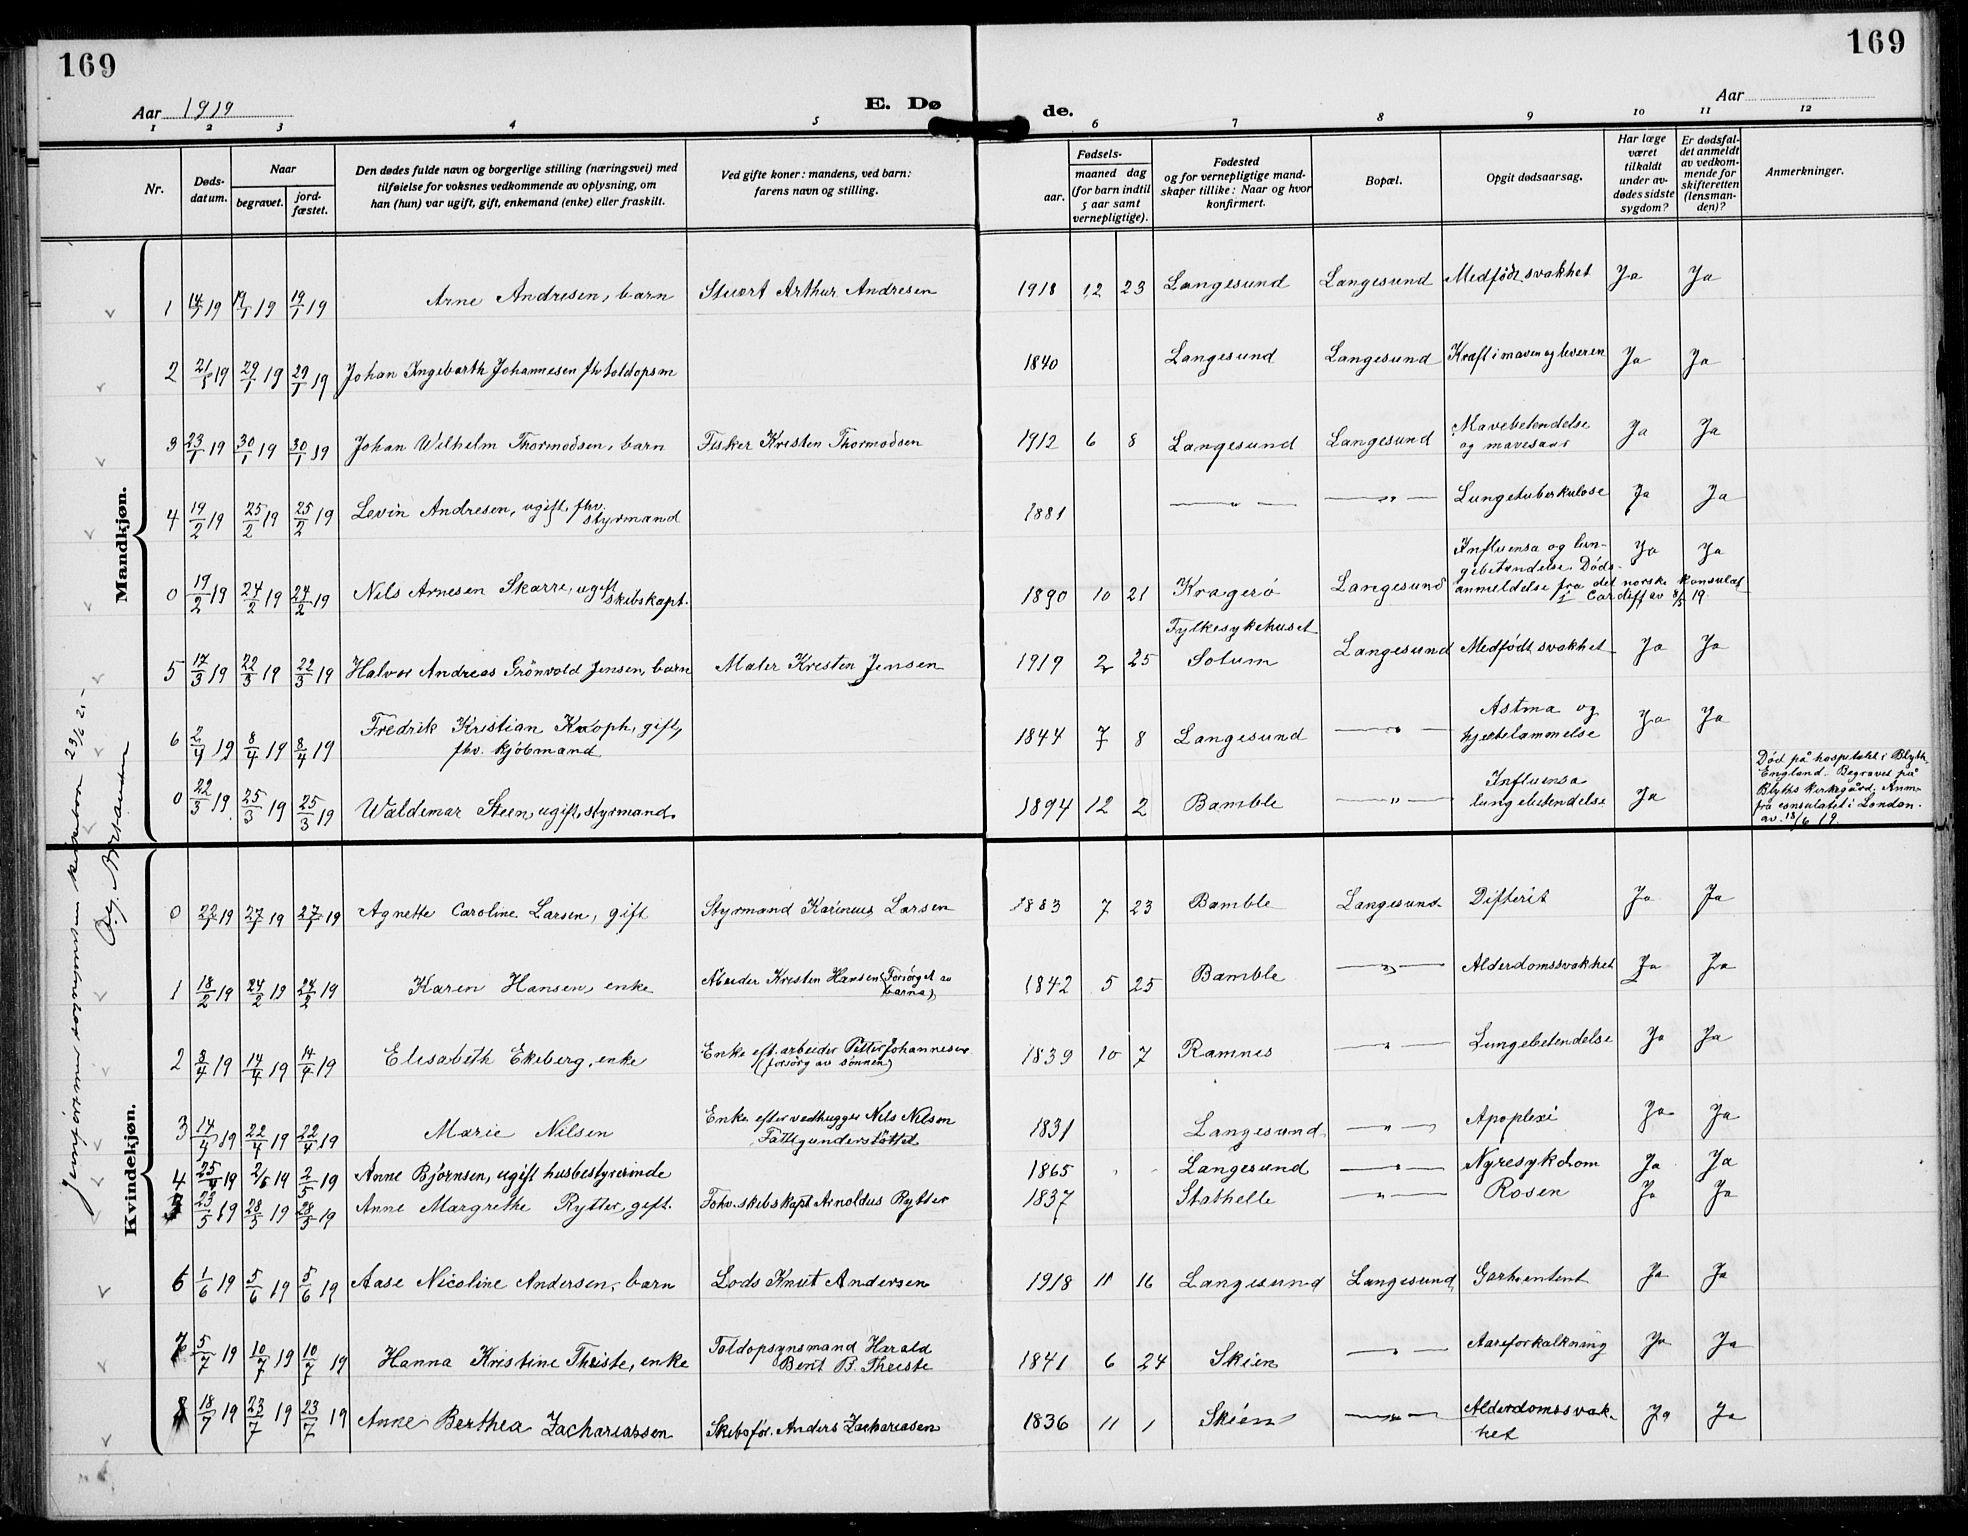 169
169
Aar 1919
E. Dø de.
Aar
1 2 3 4 5 6 7 8 9 10 11 12
Nr.
Døds-
datum.
Naar
begravet.
jord-
fæstet.
Den dødes fulde navn og borgerlige stilling (næringsvei) med
tilføielse for voksnes vedkommende av oplysning, om
han (hun) var ugift, gift, enkemand (enke) eller fraskilt.
Ved gifte koner: mandens, ved barn:
farens navn og stilling.
Fødsels-
aar.
maaned dag
(for barn indtil
5 aar samt
vernepligtige).
Fødested
og for vernepligtige mand-
skaper tillike: Naar og hvor
konfirmert.
Bopæl.
Opgit dødsaarsag.
Har læge
været
tilkaldt
under av-
dødes sidste
sygdom?
Er dødsfal-
det anmeldt
av vedkom-
mende for
skifteretten
(lensman-
den)?
Anmerkninger.
Mandkjøn.
1 14/1 19 19/1 19 19/1 19 Arne Andresen, barn Stuert Arthur Andresen 1918 12 23 Langesund Langesund Medfødt svakhet Ja Ja
2 21/1 19 29/1 19 29/1 19 Johan Ingebarth Johannesen fhv toldopsm 1840 Langesund Langesund Kræft i maven og leveren Ja Ja
3 23/1 19 30/1 19 30/1 19 Johan Wilhelm Thormodsen, barn Fisker Kristen Thormodsen 1912 6 8 Langesund Langesund Mavebetendelse
og mavesaar Ja Ja
4 19/2 19 25/2 19 25/2 19 Levin Andresen, ugift, fhv.
styrmand 1881 — " — — " — Lungetuberkulose Ja Ja
0 19/2 19 24/2 19 24/2 19 Nils Arnesen Skarre, ugift
skibskapt. 1890 10 21 Kragerø Langesund Influensa og lun-
gebetendelse. Døds-
anmeldelse fra det norske konsulat
i Cardiff av 8/5 19. Ja Ja
5 17/3 19 22/3 19 22/3 19 Halvor Andreas Grönvold Jensen, barn Maler Kresten Jensen 1919 2 25 Fylkesykehuset
Solum Langesund Medfødt svakhet Ja Ja
6 2/4 19 8/4 19 8/4 19 Fredrik Kristian Knoph, gift,
fhv. kjøbmand 1844 7 8 Langesund — " — Astma og
hjertelammelse Ja Ja
0 22/3 19 25/3 19 25/3 19 Waldemar Steen, ugift, styrmand. 1894 12 2 Bamble — " — Influensa
lungebetendelse Ja
Død på hospitalet i Blyth,
England. Begravet på
Blyths kirkegård. Anm.
fra consulatet i London.
av. 18/6 19.
Kvindekjøn.
0 22/1 19 27/1 19 27/1 19 Agnette Caroline Larsen, gift Styrmand Karinius Larsen 1883 7 23 Bamble Langesund Difterit Ja Ja
1 18/2 19 24/2 19 24/2 19 Karen Hansen, enke Arbeider Kresten Hansen (Forsörget av
barna) 1842 5 25 Bamble — " — Alderdomssvakhet Ja Ja
2 8/4 19 14/4 19 14/4 19 Elisabeth Ekeberg, enke Enke eft. arbeider Petter Johannesen
(forsörg av sönnen) 1839 10 7 Ramnes — " — Lungebetendelse Ja Ja
3 14/4 19 22/4 19 22/4 19 Marie Nilsen Enke efter vedhugger Nils Nilsen
Fattigunderstöttet 1831 Langesund — " — Apoplexi Ja Ja
4 25/4 19 2/5 19 2/5 19 Anne Bjørnsen, ugift husbestyrerinde 1865 Langesund — " — Nyresykdom Ja Ja
5 23/5 19 28/5 19 28/5 19 Anne Margrethe Rytter, gift. Fohv. skibskapt Arnoldus Rytter 1837 Stathelle — " — Rosen Ja Ja
6 1/6 19 5/6 19 5/6 19 Aase Nicoline Andersen, barn Lods Knut Andersen 1918 11 16 Langesund Langesund Ja Ja
7 5/7 19 10/7 19 10/7 19 Hanna Kristine Theiste, enke Toldopsynsmand Harald
Bent B. Theiste 1841 6 24 Skien — " — Aareforkalkning Ja Ja
8 18/7 19 23/7 19 23/7 19 Anne Berthea Zachariassen Skibsför. Anders Zachariasen 1836 11 1 Skien — " — Alderdomssvak-
het Ja Ja